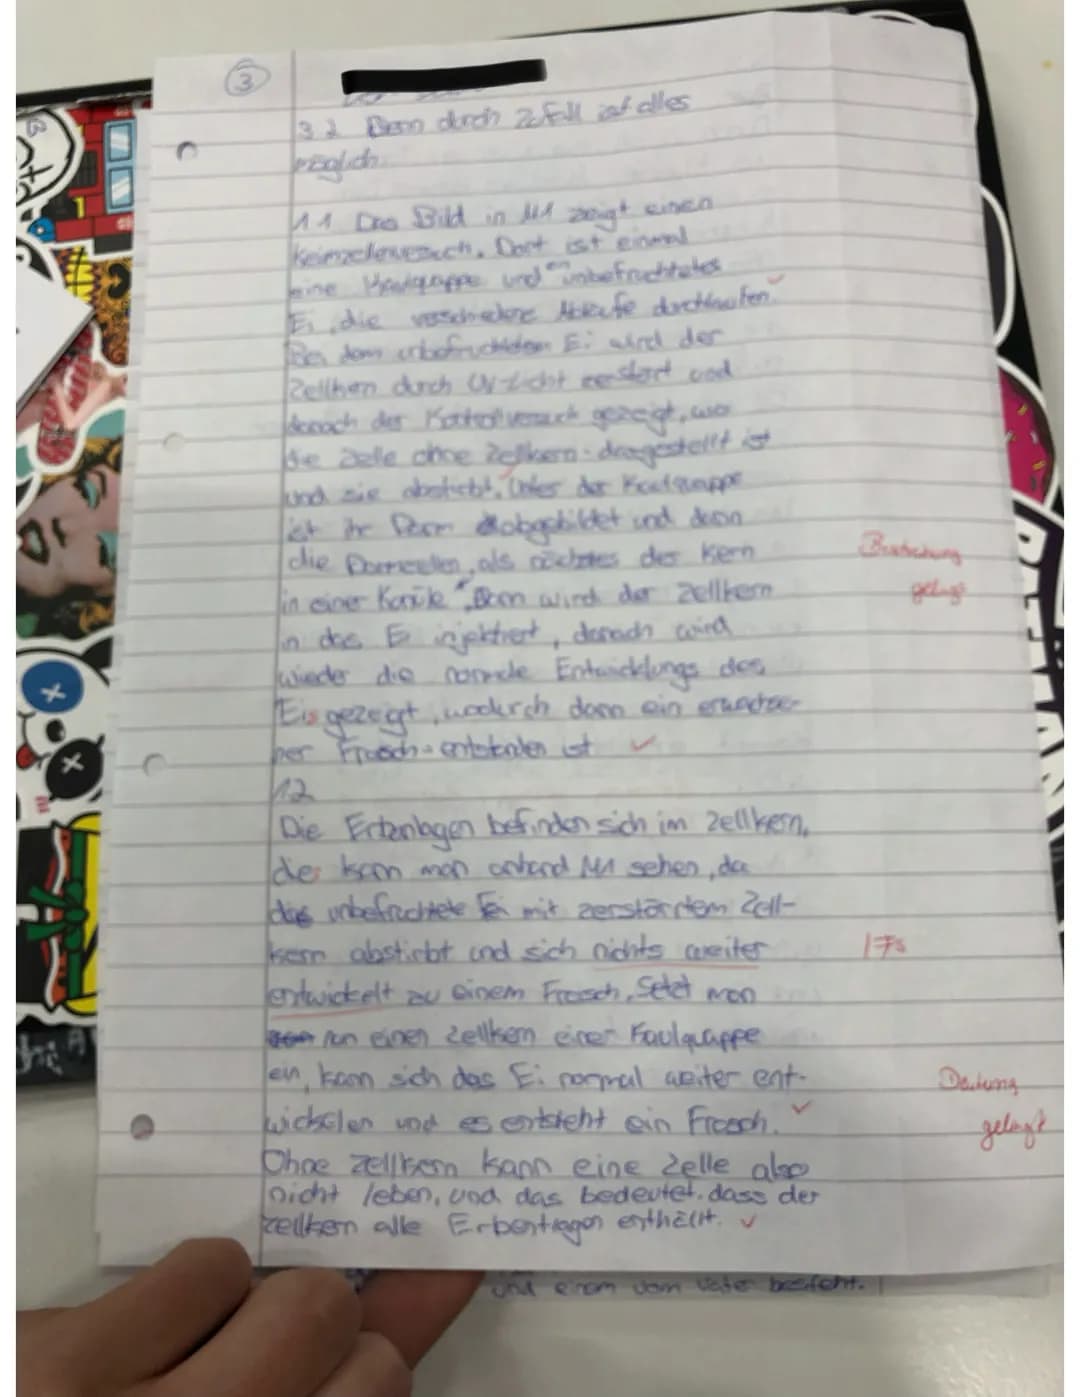 3
3 2 Denn durch Zufall ist alles
möglich.
1 1 Das Bild in M1 zeigt einen
Keimzellenversuch. Dort ist einmal
eine Kaulquappe und ein unbefruchtetes
Ei, die verschiedene Abläufe durchlaufen.
Bei dem unbefruchteten Ei wird der
Zellkern durch UV-Licht zerstört und
danach der Kontrollversuch gezeigt, wo
die Zelle ohne Zellkern dargestellt ist
und sie abstirbt. Unter der Kaulquappe
ist ihr Darm abgebildet und dann
die Darmzellen, als nächstes der Kern
in einer Kanüle. Dann wird der Zellkern
in das Ei injektiert, danach wird
wieder die normale Entwicklungs des
Eis gezeigt, wodurch dann ein erwachse-
ner Frosch entstanden ist
Beschreibung
gelingt
12
Die Erbanlagen befinden sich im Zellkern,
des kann man anhand M1 sehen, da
das unbefruchtete Ei mit zerstörtem Zell-
kern abstirbt und sich nichts weiter
entwickelt zu einem Frosch. Setzt man
nun einen Zellkern einer Kaulquappe
ein, kann sich das Ei normal weiter ent-
wickelen und es entsteht ein Frosch.
Ohne Zellkern kann eine Zelle also
nicht leben, und das bedeutet, dass der
Zellkern alle Erbentlagen enthält.
Deutung
gelingt
und einem vom Vater besteht.